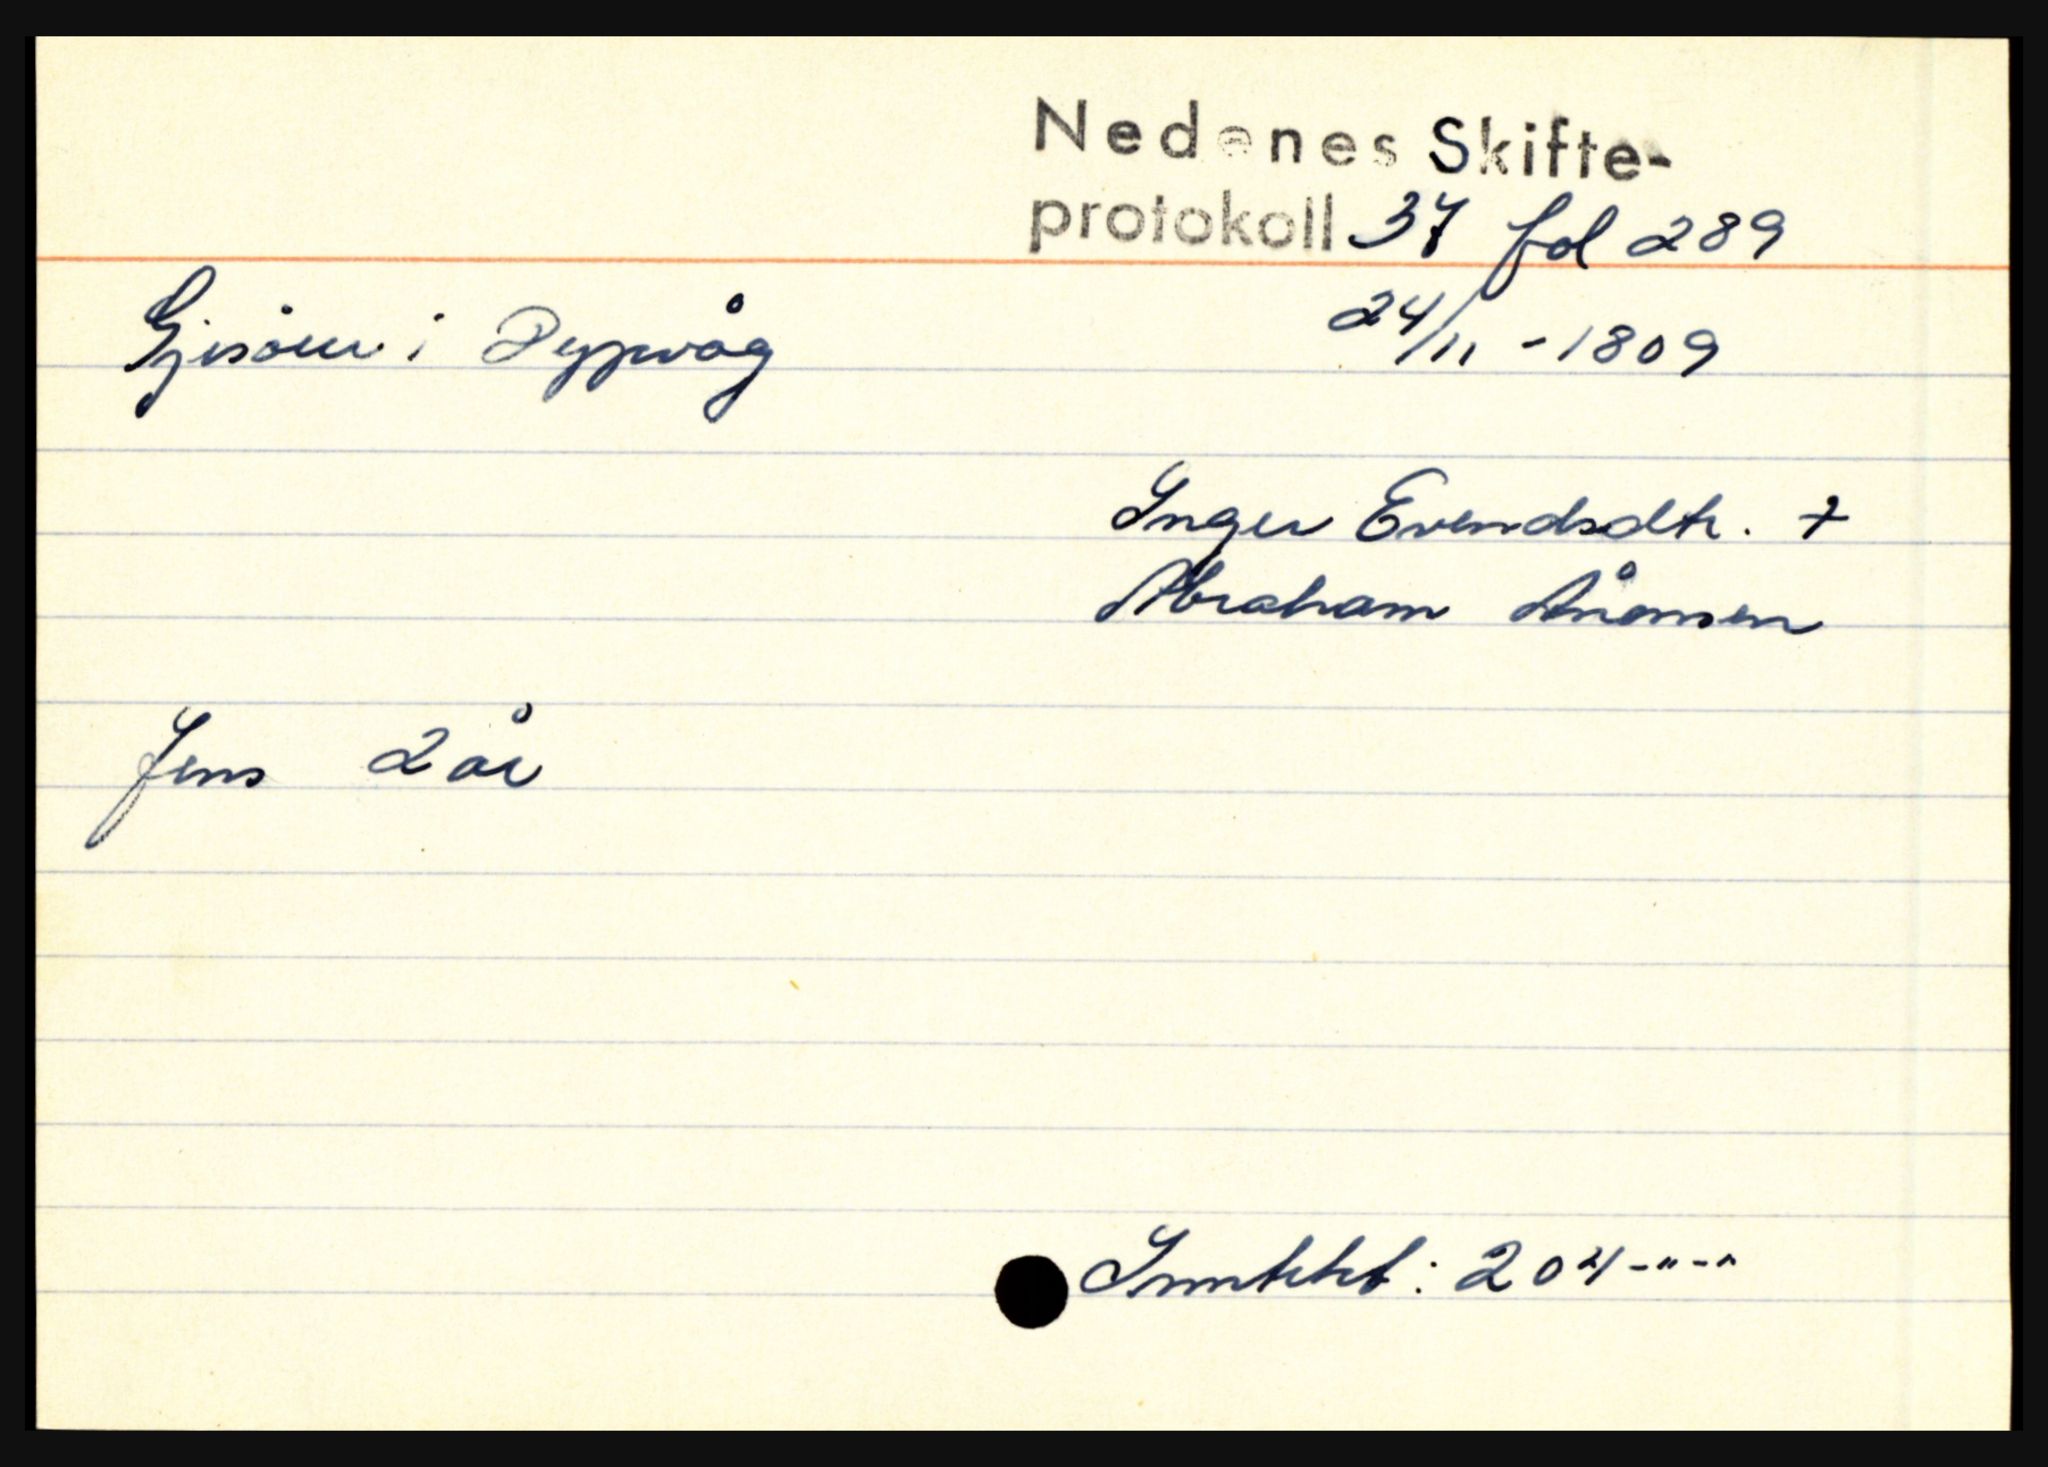 Nedenes Skifte-
protokoll 37 fol 289
Gjesåen i Dypvåg
24/11 - 1809
Inger Evendsdtr. +
AbrahamÅnonsen
Jens 2 år
Inntekt: 204-"-"